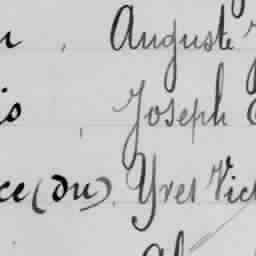 Auguste
Joseph
ce (du), Yves Vic